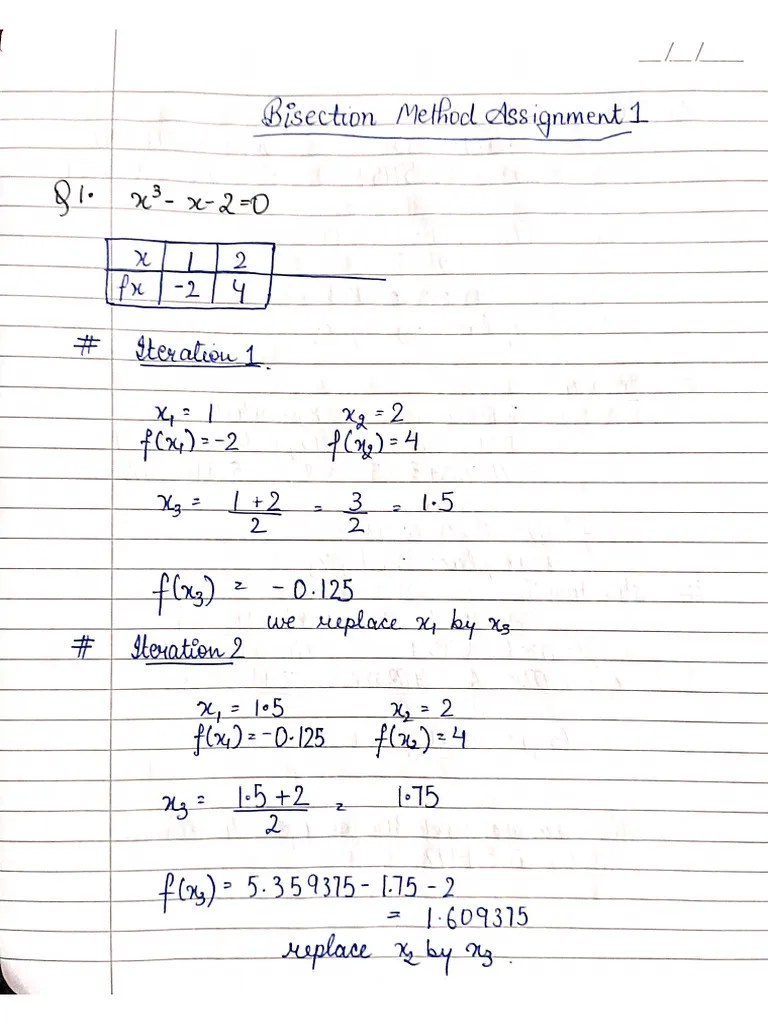 __/__/____
Bisection Method Assignment 1
Q1. x³ - x - 2 = 0
x 1 2
fx -2 4
# Iteration 1.
x₁ = 1 x₂ = 2
f(x₁) = -2 f(x₂) = 4
x₃ = (1 + 2)/2 = 3/2 = 1.5
f(x₃) = -0.125
we replace x₁ by x₃
# Iteration 2
x₁ = 1.5 x₂ = 2
f(x₁) = -0.125 f(x₂) = 4
x₃ = (1.5 + 2)/2 = 1.75
f(x₃) = 5.359375 - 1.75 - 2
= 1.609375
replace x₂ by x₃.